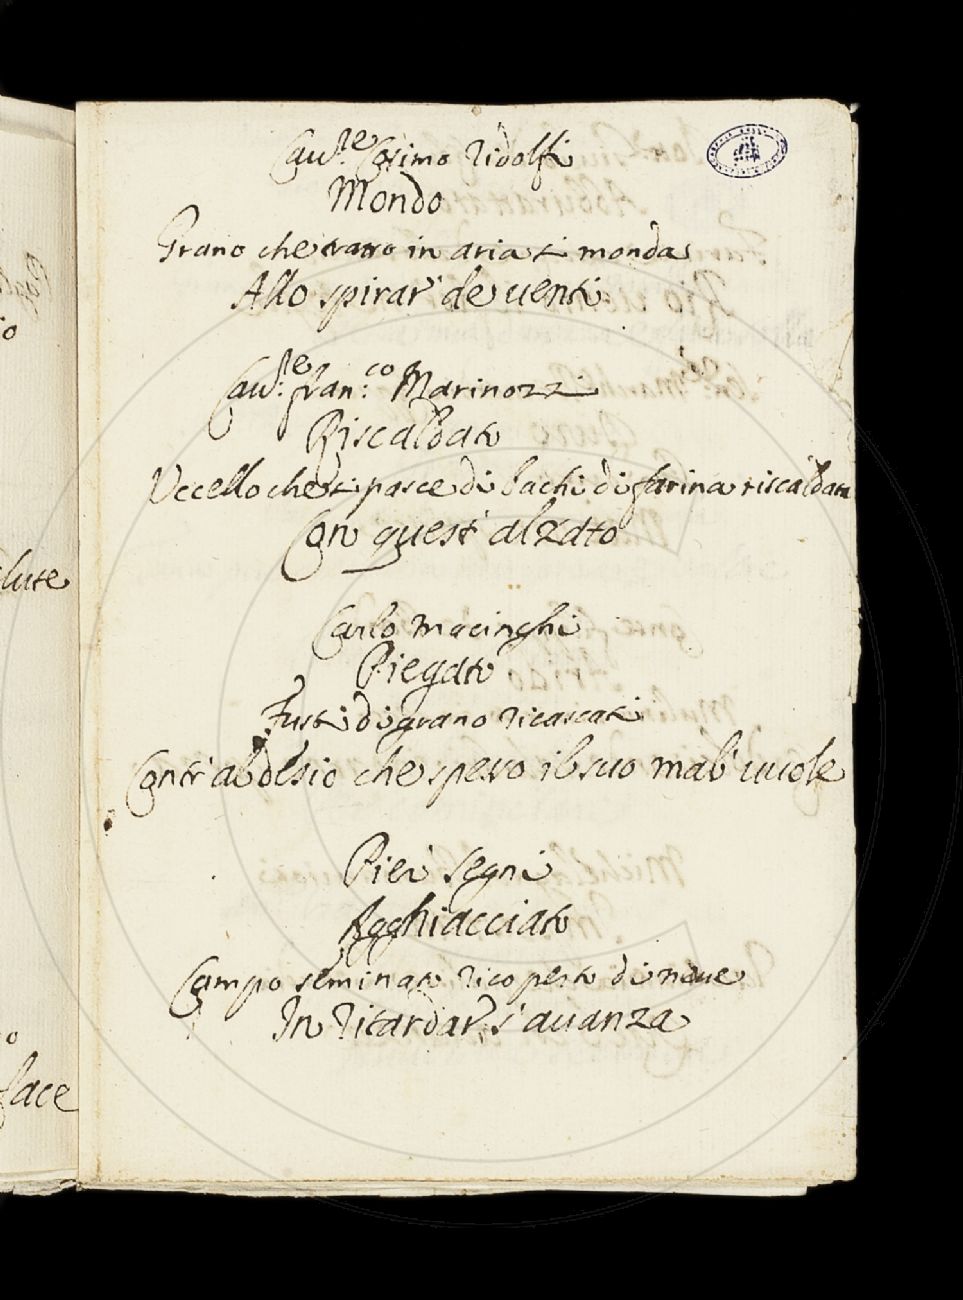 Cau.re Cosimo Ridolfi
Mondo
Grano che tratto in aria si monda
Allo spirar' de uenti
Cau.re fran.co Marinozzi
Riscaldato
Vccello che si pasce di bachi di farina riscaldata
Con quest' alzato
Carlo macinghi
Piegato
Fusti di grano ricascati
Contr' al desio che spero il suo mal' uuole
Pier Segni
Agghiacciato
Campo seminato ricoperto di neue
In ritardar' s'auanza
lute
o
face